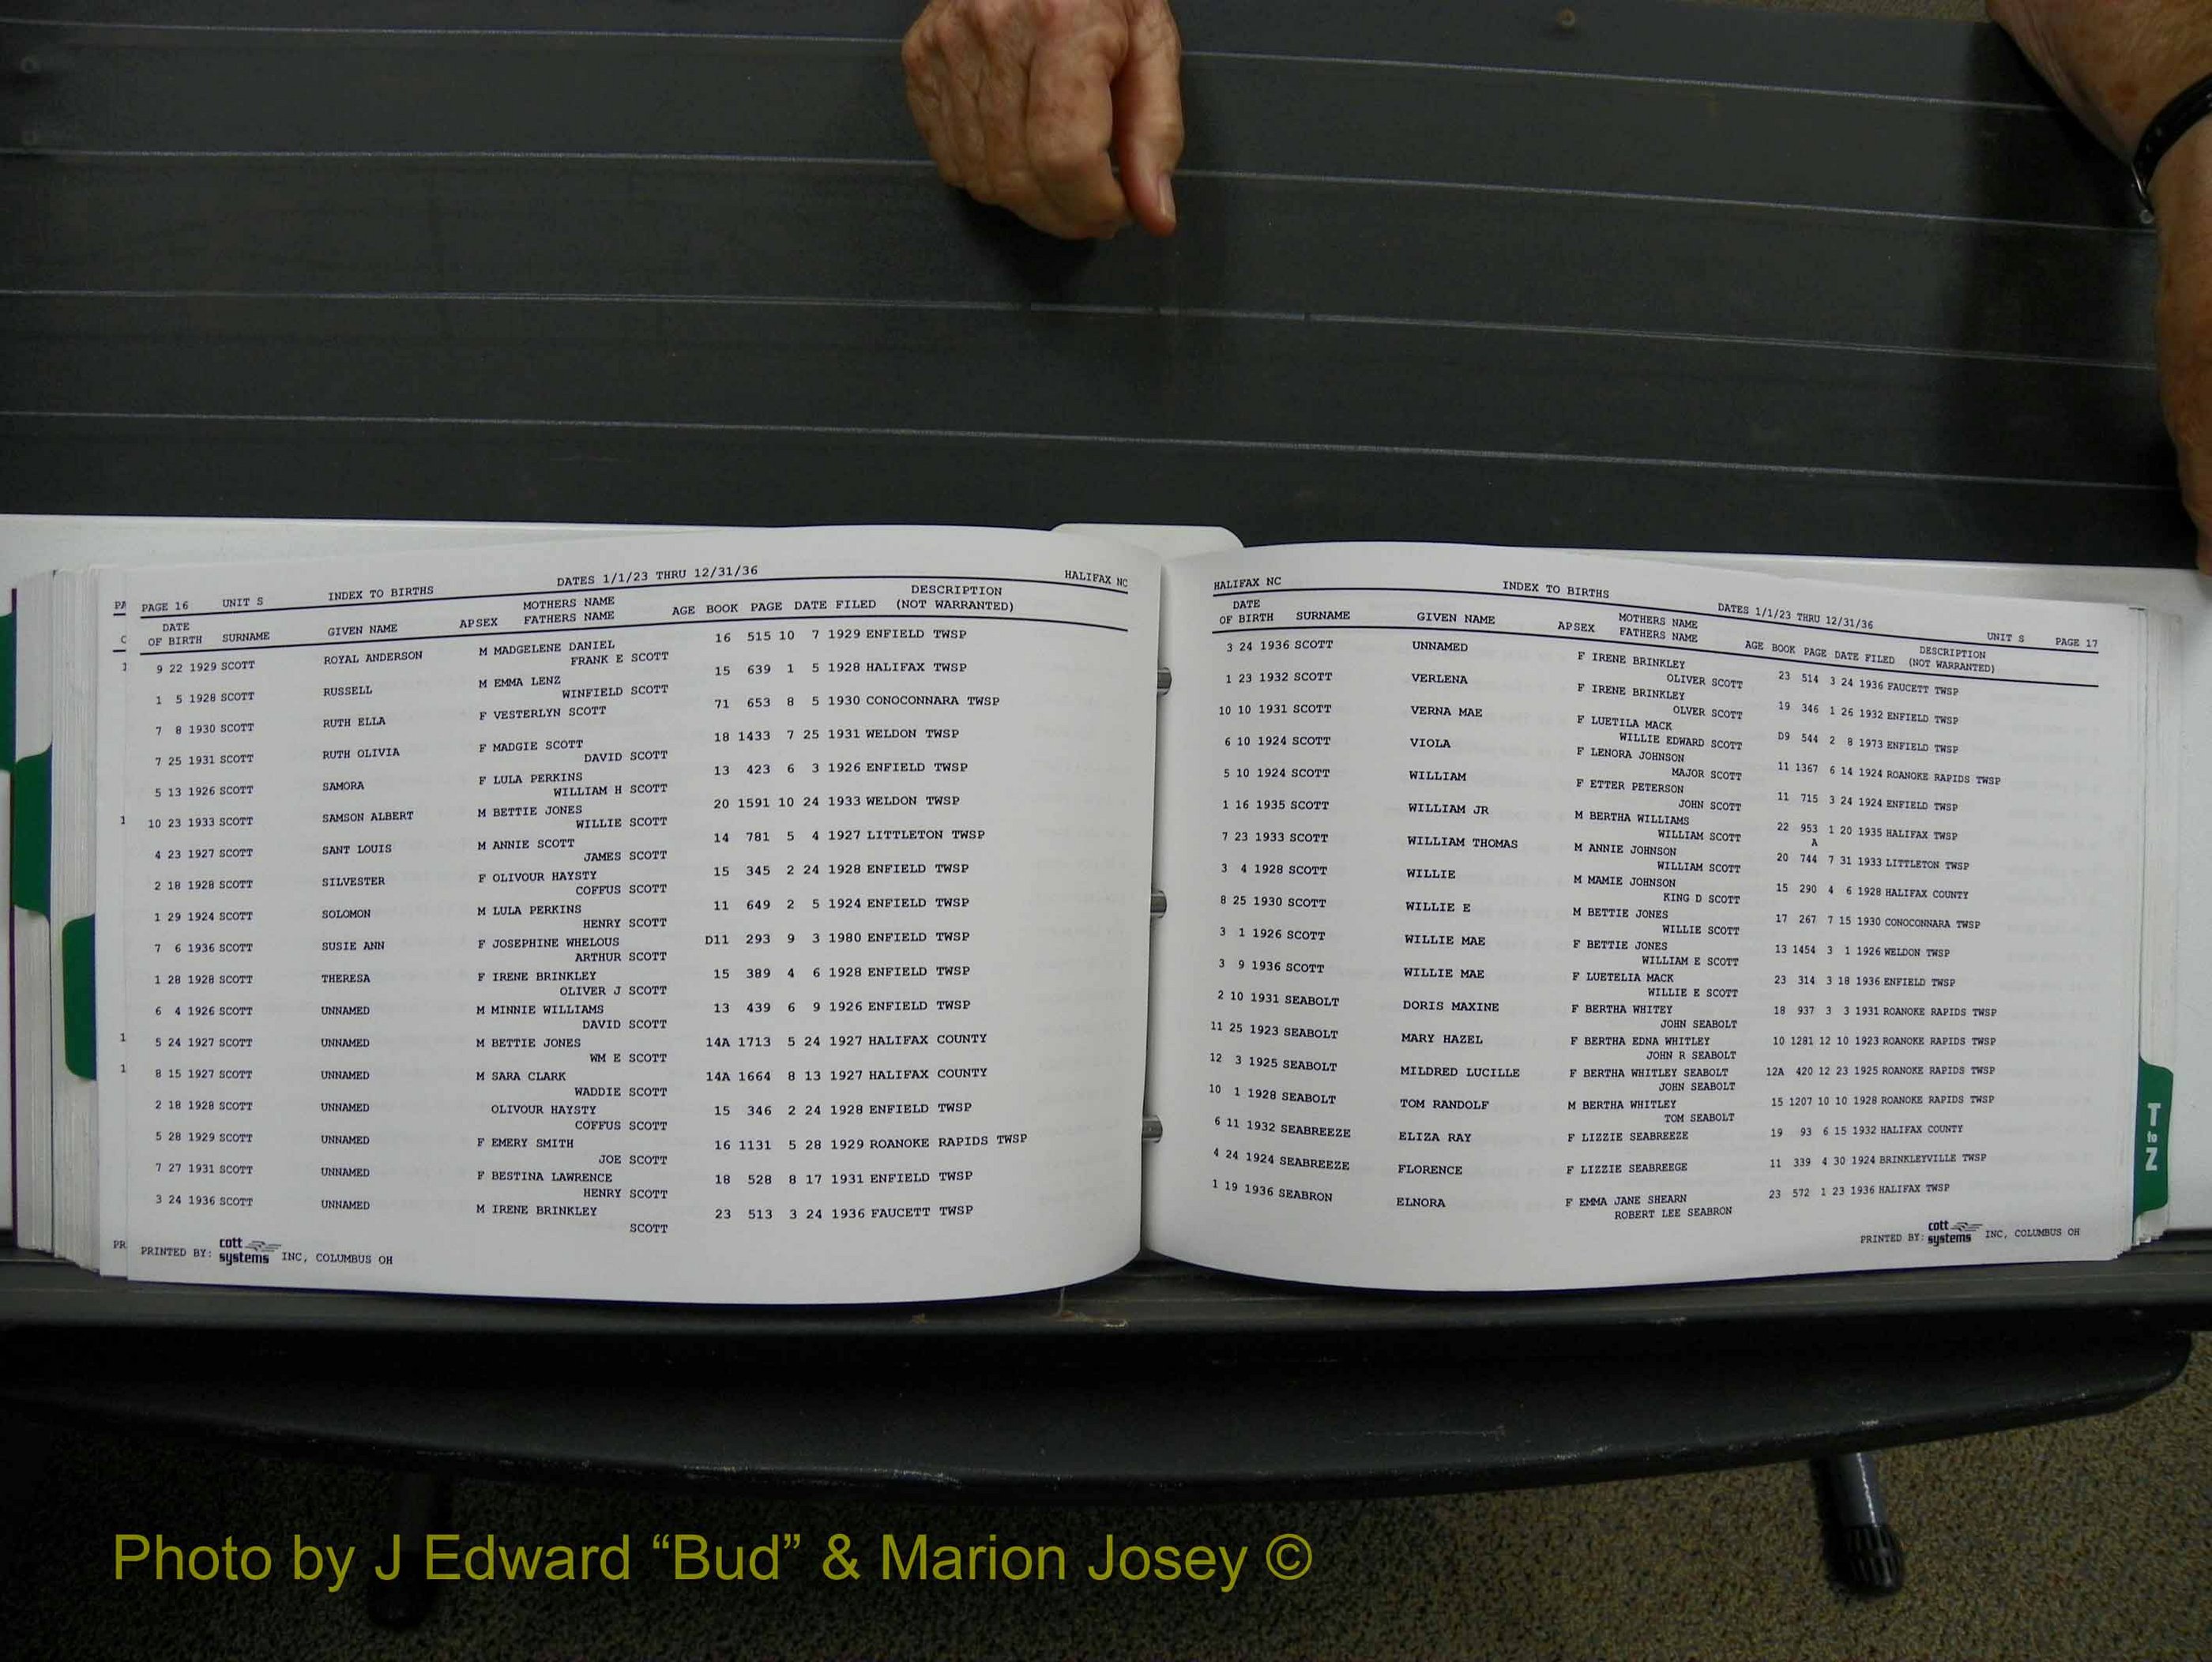 PAGE 16 UNIT S INDEX TO BIRTHS DATES 1/1/23 THRU 12/31/36 HALIFAX NC
DATE MOTHERS NAME DESCRIPTION
OF BIRTH SURNAME GIVEN NAME APSEX FATHERS NAME AGE BOOK PAGE DATE FILED (NOT WARRANTED)
9 22 1929 SCOTT ROYAL ANDERSON M MADGELENE DANIEL 16 515 10 7 1929 ENFIELD TWSP
FRANK E SCOTT
1 5 1928 SCOTT RUSSELL M EMMA LENZ 15 639 1 5 1928 HALIFAX TWSP
WINFIELD SCOTT
7 8 1930 SCOTT RUTH ELLA F VESTERLYN SCOTT 71 653 8 5 1930 CONOCONNARA TWSP
7 25 1931 SCOTT RUTH OLIVIA F MADGIE SCOTT 18 1433 7 25 1931 WELDON TWSP
DAVID SCOTT
5 13 1926 SCOTT SAMORA F LULA PERKINS 13 423 6 3 1926 ENFIELD TWSP
WILLIAM H SCOTT
10 23 1933 SCOTT SAMSON ALBERT M BETTIE JONES 20 1591 10 24 1933 WELDON TWSP
WILLIE SCOTT
4 23 1927 SCOTT SANT LOUIS M ANNIE SCOTT 14 781 5 4 1927 LITTLETON TWSP
JAMES SCOTT
2 18 1928 SCOTT SILVESTER F OLIVOUR HAYSTY 15 345 2 24 1928 ENFIELD TWSP
COFFUS SCOTT
1 29 1924 SCOTT SOLOMON M LULA PERKINS 11 649 2 5 1924 ENFIELD TWSP
HENRY SCOTT
7 6 1936 SCOTT SUSIE ANN F JOSEPHINE WHELOUS D11 293 9 3 1980 ENFIELD TWSP
ARTHUR SCOTT
1 28 1928 SCOTT THERESA F IRENE BRINKLEY 15 389 4 6 1928 ENFIELD TWSP
OLIVER J SCOTT
6 4 1926 SCOTT UNNAMED M MINNIE WILLIAMS 13 439 6 9 1926 ENFIELD TWSP
DAVID SCOTT
5 24 1927 SCOTT UNNAMED M BETTIE JONES 14A 1713 5 24 1927 HALIFAX COUNTY
WM E SCOTT
8 15 1927 SCOTT UNNAMED M SARA CLARK 14A 1664 8 13 1927 HALIFAX COUNTY
WADDIE SCOTT
2 18 1928 SCOTT UNNAMED OLIVOUR HAYSTY 15 346 2 24 1928 ENFIELD TWSP
COFFUS SCOTT
5 28 1929 SCOTT UNNAMED F EMERY SMITH 16 1131 5 28 1929 ROANOKE RAPIDS TWSP
JOE SCOTT
7 27 1931 SCOTT UNNAMED F BESTINA LAWRENCE 18 528 8 17 1931 ENFIELD TWSP
HENRY SCOTT
3 24 1936 SCOTT UNNAMED M IRENE BRINKLEY 23 513 3 24 1936 FAUCETT TWSP
SCOTT
PRINTED BY: cott systems INC, COLUMBUS OH
HALIFAX NC INDEX TO BIRTHS DATES 1/1/23 THRU 12/31/36 UNIT S PAGE 17
DATE MOTHERS NAME DESCRIPTION
OF BIRTH SURNAME GIVEN NAME APSEX FATHERS NAME AGE BOOK PAGE DATE FILED (NOT WARRANTED)
3 24 1936 SCOTT UNNAMED F IRENE BRINKLEY 23 514 3 24 1936 FAUCETT TWSP
OLIVER SCOTT
1 23 1932 SCOTT VERLENA F IRENE BRINKLEY 19 346 1 26 1932 ENFIELD TWSP
OLVER SCOTT
10 10 1931 SCOTT VERNA MAE F LUETILA MACK D9 544 2 8 1973 ENFIELD TWSP
WILLIE EDWARD SCOTT
6 10 1924 SCOTT VIOLA F LENORA JOHNSON 11 1367 6 14 1924 ROANOKE RAPIDS TWSP
MAJOR SCOTT
5 10 1924 SCOTT WILLIAM F ETTER PETERSON 11 715 3 24 1924 ENFIELD TWSP
JOHN SCOTT
1 16 1935 SCOTT WILLIAM JR M BERTHA WILLIAMS 22 953 1 20 1935 HALIFAX TWSP
WILLIAM SCOTT A
7 23 1933 SCOTT WILLIAM THOMAS M ANNIE JOHNSON 20 744 7 31 1933 LITTLETON TWSP
WILLIAM SCOTT
3 4 1928 SCOTT WILLIE M MAMIE JOHNSON 15 290 4 6 1928 HALIFAX COUNTY
KING D SCOTT
8 25 1930 SCOTT WILLIE E M BETTIE JONES 17 267 7 15 1930 CONOCONNARA TWSP
WILLIE SCOTT
3 1 1926 SCOTT WILLIE MAE F BETTIE JONES 13 1454 3 1 1926 WELDON TWSP
WILLIAM E SCOTT
3 9 1936 SCOTT WILLIE MAE F LUETELIA MACK 23 314 3 18 1936 ENFIELD TWSP
WILLIE E SCOTT
2 10 1931 SEABOLT DORIS MAXINE F BERTHA WHITEY 18 937 3 3 1931 ROANOKE RAPIDS TWSP
JOHN SEABOLT
11 25 1923 SEABOLT MARY HAZEL F BERTHA EDNA WHITLEY 10 1281 12 10 1923 ROANOKE RAPIDS TWSP
JOHN R SEABOLT
12 3 1925 SEABOLT MILDRED LUCILLE F BERTHA WHITLEY SEABOLT 12A 420 12 23 1925 ROANOKE RAPIDS TWSP
JOHN SEABOLT
10 1 1928 SEABOLT TOM RANDOLF M BERTHA WHITLEY 15 1207 10 10 1928 ROANOKE RAPIDS TWSP
TOM SEABOLT
6 11 1932 SEABREEZE ELIZA RAY F LIZZIE SEABREEZE 19 93 6 15 1932 HALIFAX COUNTY
4 24 1924 SEABREEZE FLORENCE F LIZZIE SEABREEGE 11 339 4 30 1924 BRINKLEYVILLE TWSP
1 19 1936 SEABRON ELNORA F EMMA JANE SHEARN 23 572 1 23 1936 HALIFAX TWSP
ROBERT LEE SEABRON
PRINTED BY: cott systems INC, COLUMBUS OH
T to Z
Photo by J Edward “Bud” & Marion Josey ©